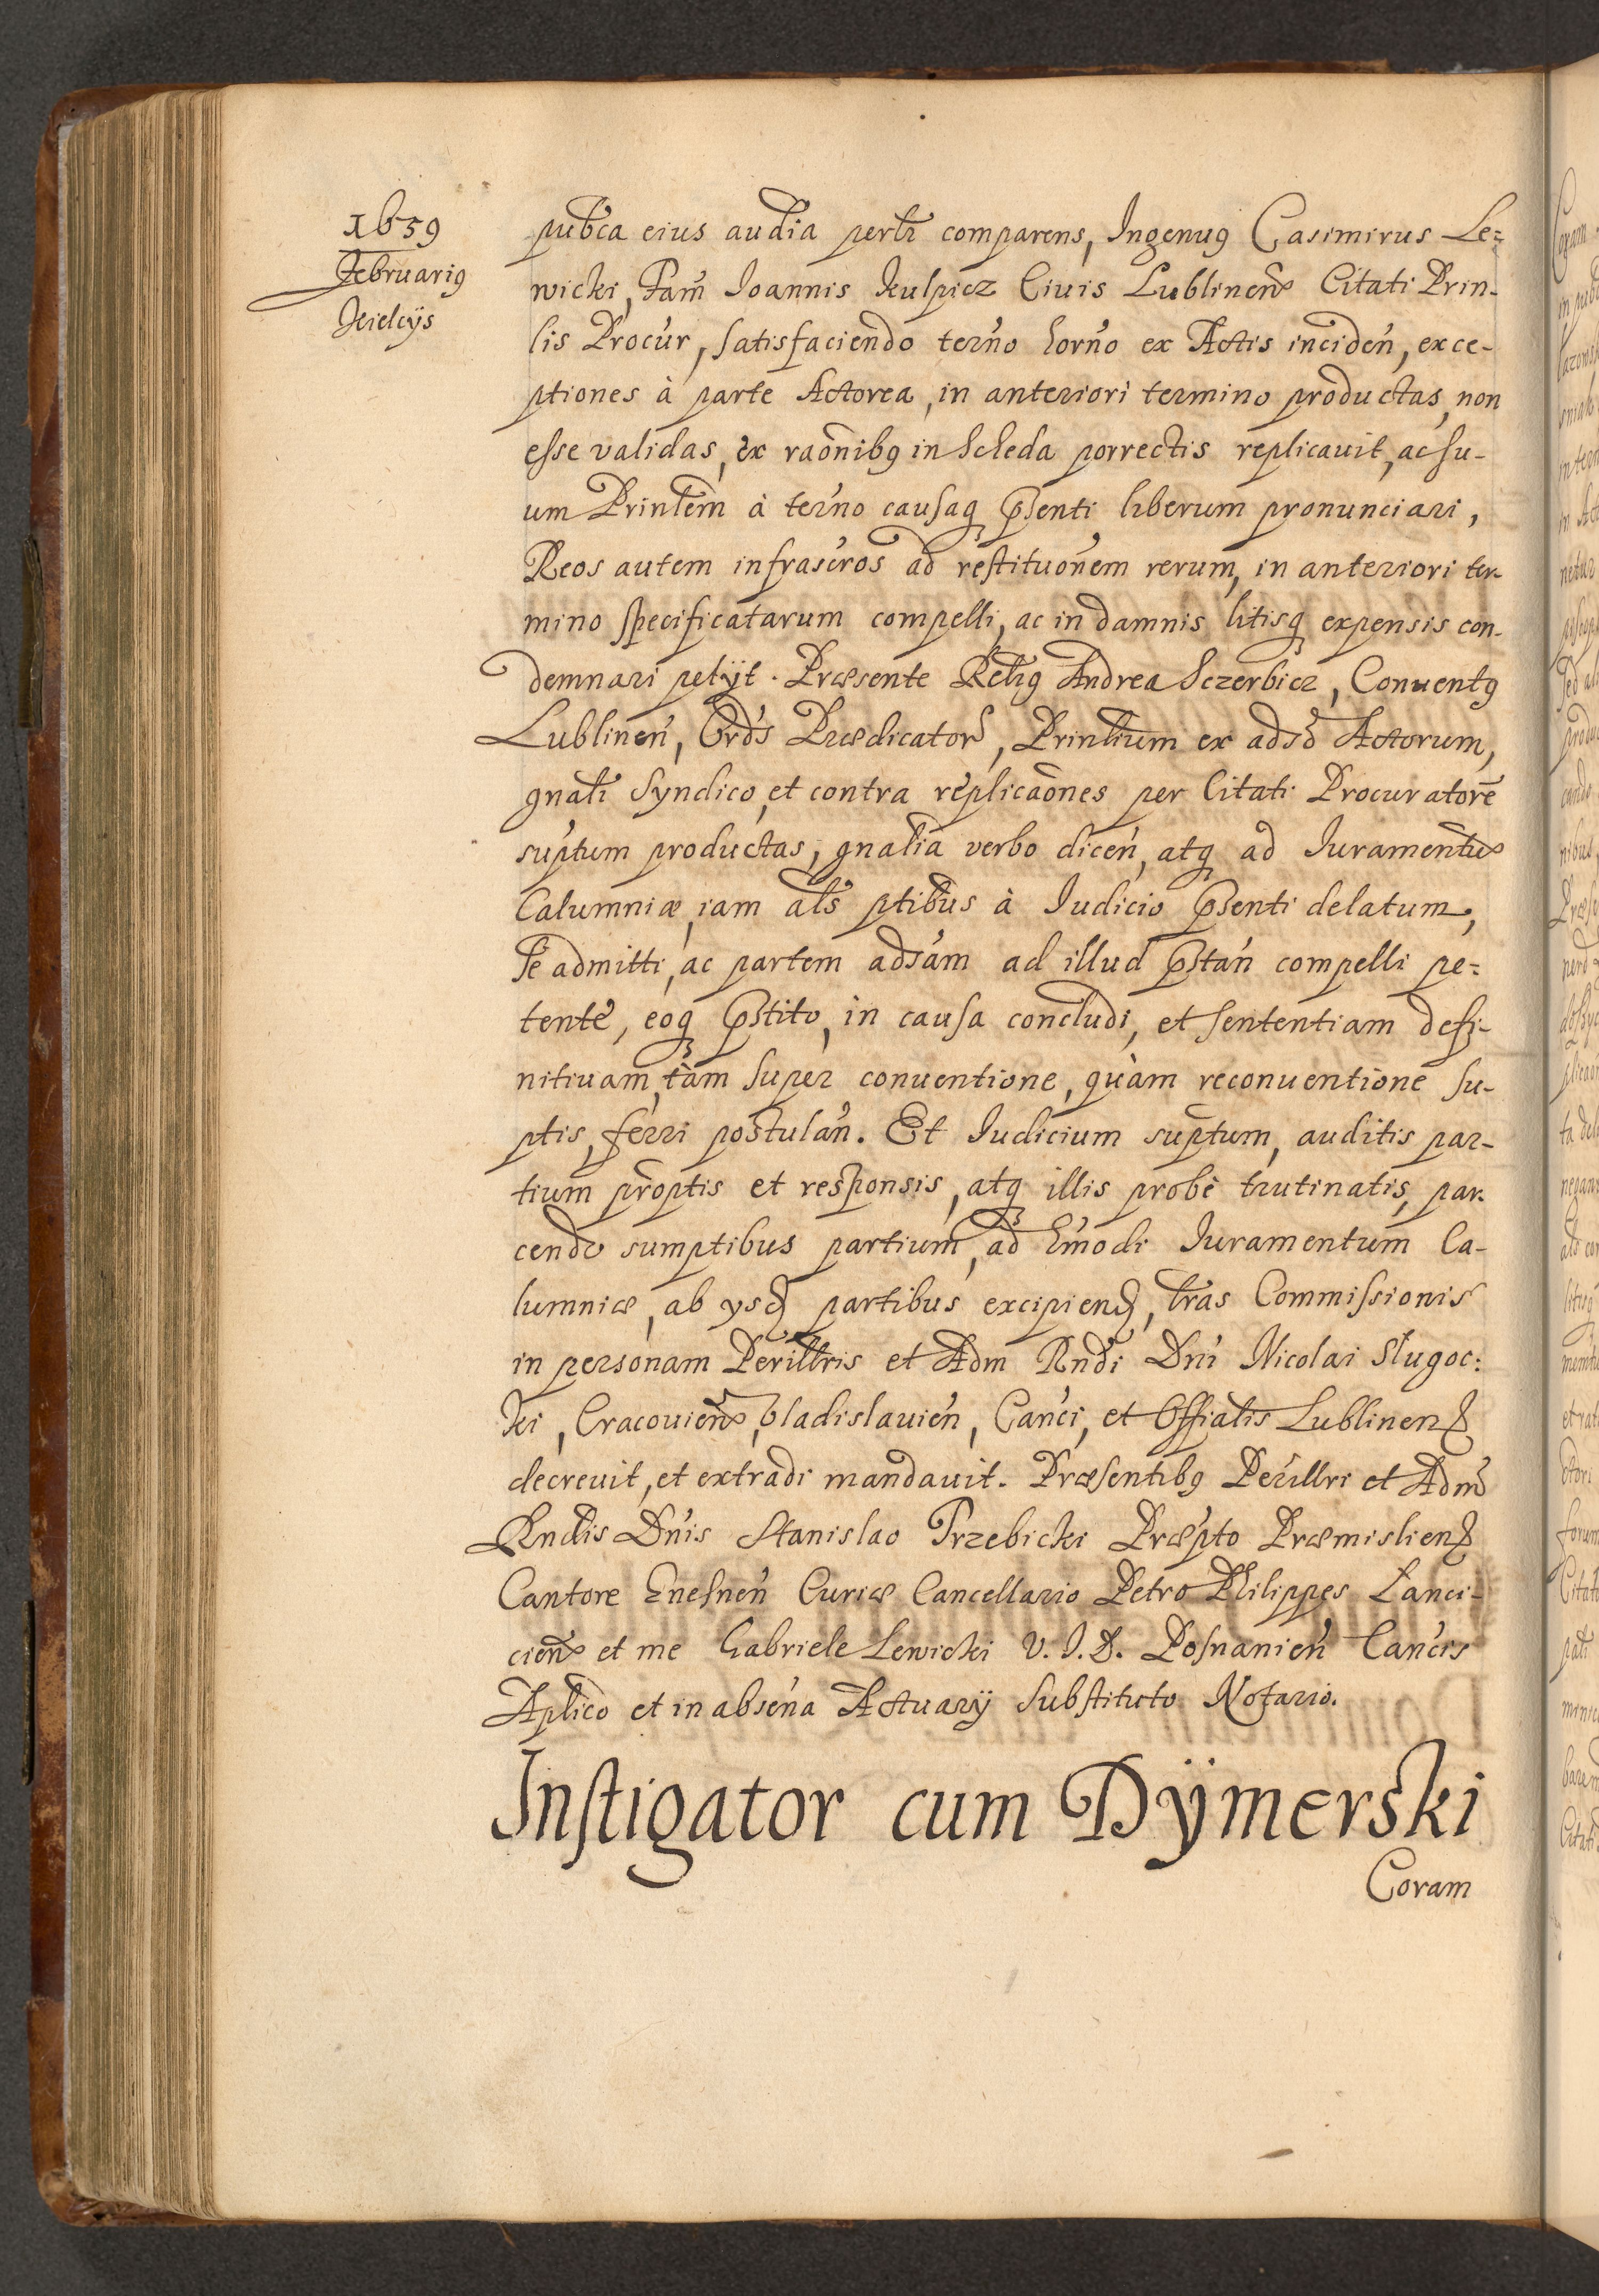 1659
Februarig
Kielcijs
pub̃ca eius audĩa perlr̃ comparens, Ingenug Casimirus Le=
wicki, Fam̃ Ioannis Kulpicz Ciuis Lublinen̄ Citati Prin-
lis Procur̃, satisfaciendo ter̃no horño ex Actis inciden̄, exce-
ptiones à parte Actorea, in anteriori termino productas, non
esse validas, ex raõnibg in Scheda porrectis replicauit, ac su-
um Prinlem̃ à ter̃no causaq p̃senti liberum pronunciari,
Reos autem infrasc̃ros ad restituõnem rerum, in anteriori ter-
mino specificatarum compelli, ac in damnis litisq expensis con-
demnari petijt. Præsente Relig Andrea Sczerbicz, Conuentg
Lublinen̄, Ord̃s Prædicator, Prinlium̃ ex ads̃o Actorum,
gnali Syndico, et contra replicaõnes per Citati Procuratorẽ
sup̃tum productas, gnalĩa verbo dicen̄, atq ad Iuramentũ
Calumniæ, iam al̃s ptibũs à Iudicio p̃senti delatum,
se admitti, ac partem ads̃am ad illud p̃stan̄ compelli pe=
tente, eoq p̃stito, in causa concludi, et sententiam defi-
nitiuam, tàm super conuentione, quàm reconuentione su-
ptis, ferri postulan̄. Et Iudicium sup̃tum, auditis par-
tium pr̃optis et responsis, atq illis probè trutinatis, par-
cendo sumptibus partium, ad hm̃odi Iuramentum Ca-
lumniæ, ab ysd partibus excipiend, lr̃as Commissionis
in personam Perillris et Adm Rndi Dñi Nicolai Slugoc:
ki, Cracouien̄, Vladislauien̄, Cañci, et Offialis Lublinen
decreuit, et extradi mandauit. Præsentibg Perillri et Adm̃
Rndis Dñis Stanislao Trzebicki Præp̃to Præmislien
Cantore Gnesnen̄ Curiæ Cancellario Petro Philippes Lanci-
cien̄ et me Gabriele Lewicki V. I. D. Posnanien̄ Cañcis
Aplico et in absen̄a Actuarij substituto Notario.
Instigator cum Dÿmerski
Coram